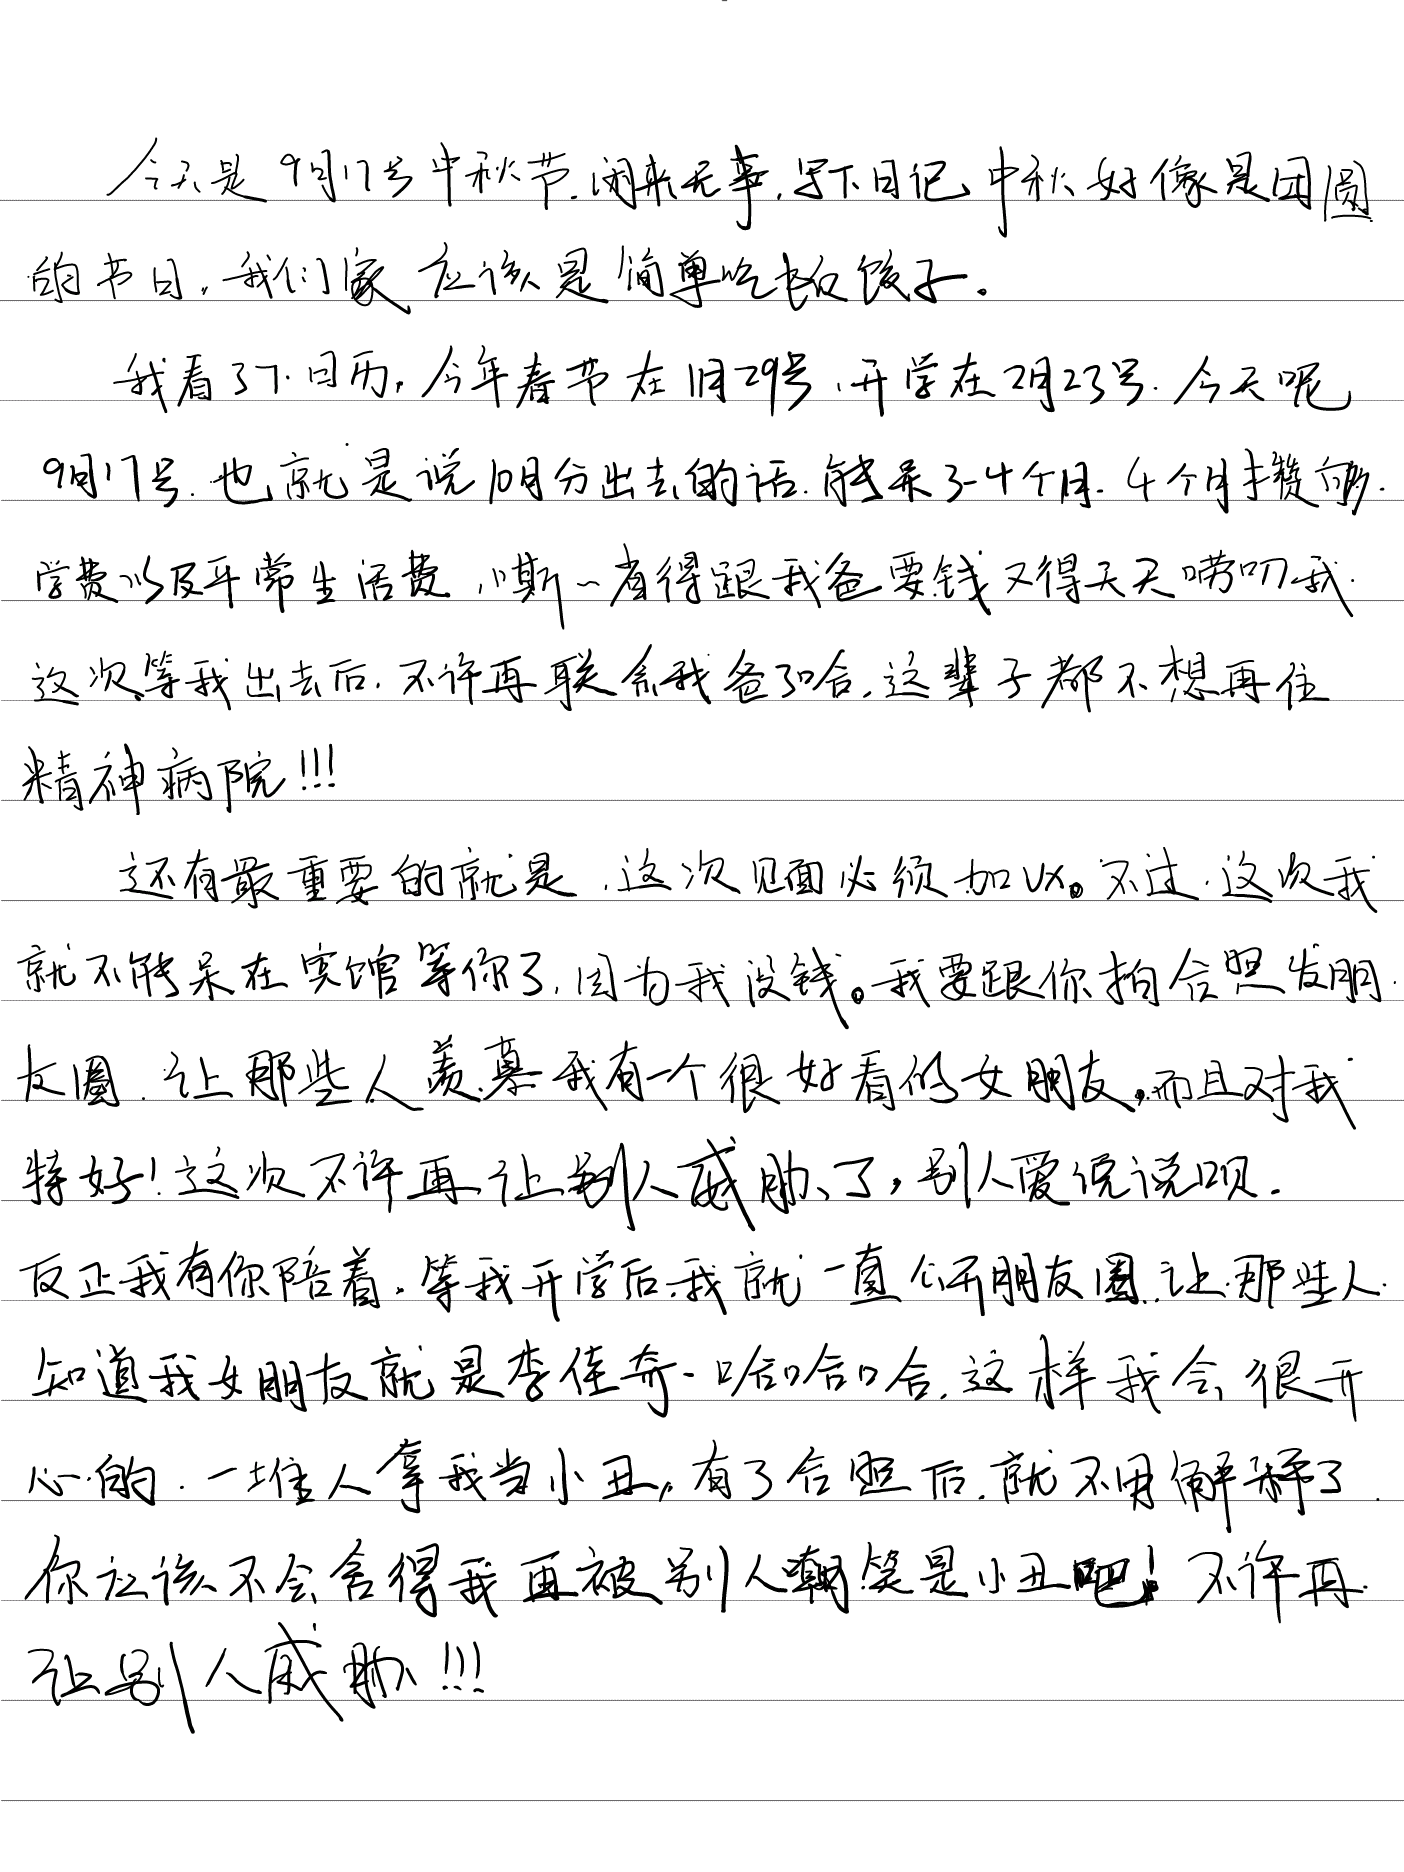 今天是9月17号中秋节.闲来无事,写下日记,中秋好像是团圆
的节日,我们家应该是简单吃饺子。
我看了下日历,今年春节在1月29号,开学在2月23号.今天呢
9月17号.也就是说10月分出去的话.能呆3-4个月.4个月攒够.
学费以及平常生活费,嘶~省得跟我爸要钱又得天天唠叨我.
这次等我出去后.不许再联系我爸了哈,这辈子都不想再住
精神病院!!!
还有最重要的就是,这次见面必须加VX。不过,这次我
就不能呆在宾馆等你了,因为我没钱。我要跟你拍合照发朋
友圈.让那些人羡慕我有一个很好看的女朋友,而且对我
特好!这次不许再让别人威胁了,别人爱说说呗.
反正我有你陪着,等我开学后,我就一直公开朋友圈.让那些人
知道我女朋友就是李佳奇-哈哈哈,这样我会很开
心的.一堆人拿我当小丑,有了合照后.就不用解释了
你应该不会舍得我再被别人嘲笑是小丑吧!不许再
让别人威胁!!!